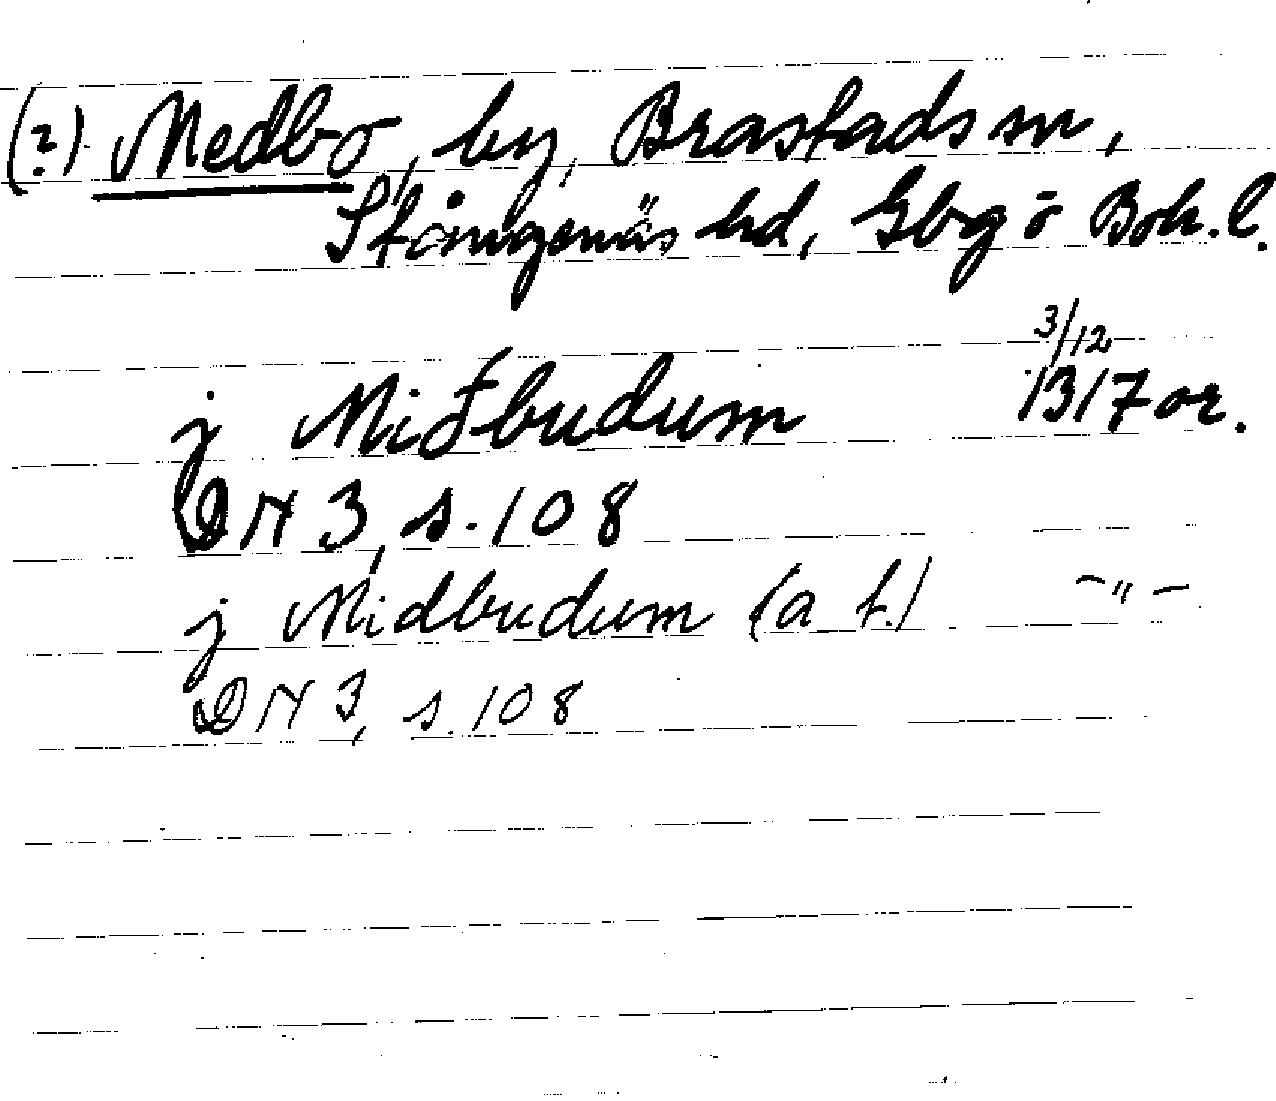 (?) Medbo, by, Brastads sn,
Stångenäs hd, Gbg o Boh. l.
j Miđbudum 3/12 1317 or.
DN 3, s. 108
j Midbudum (a f.) -"-
DN 3, s. 108